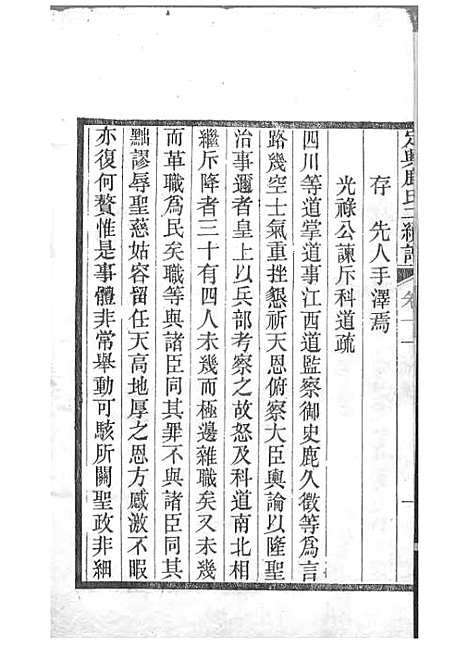 定興鹿氏二續譜 卷十一
存　先人手澤焉
光祿公諫斥科道疏
四川等道掌道事江西道監察御史鹿久徵等爲言
路幾空士氣重挫懇祈天恩俯察大臣輿論以隆聖
治事邇者皇上以兵部考察之故怒及科道南北相
繼斥降者三十有四人未幾而極邊雜職矣又未幾
而革職爲民矣職等與諸臣同其罪不與諸臣同其
黜謬辱聖慈姑容留任天高地厚之恩方感激不暇
亦復何贅惟是事體非常舉動可駭所關聖政非細